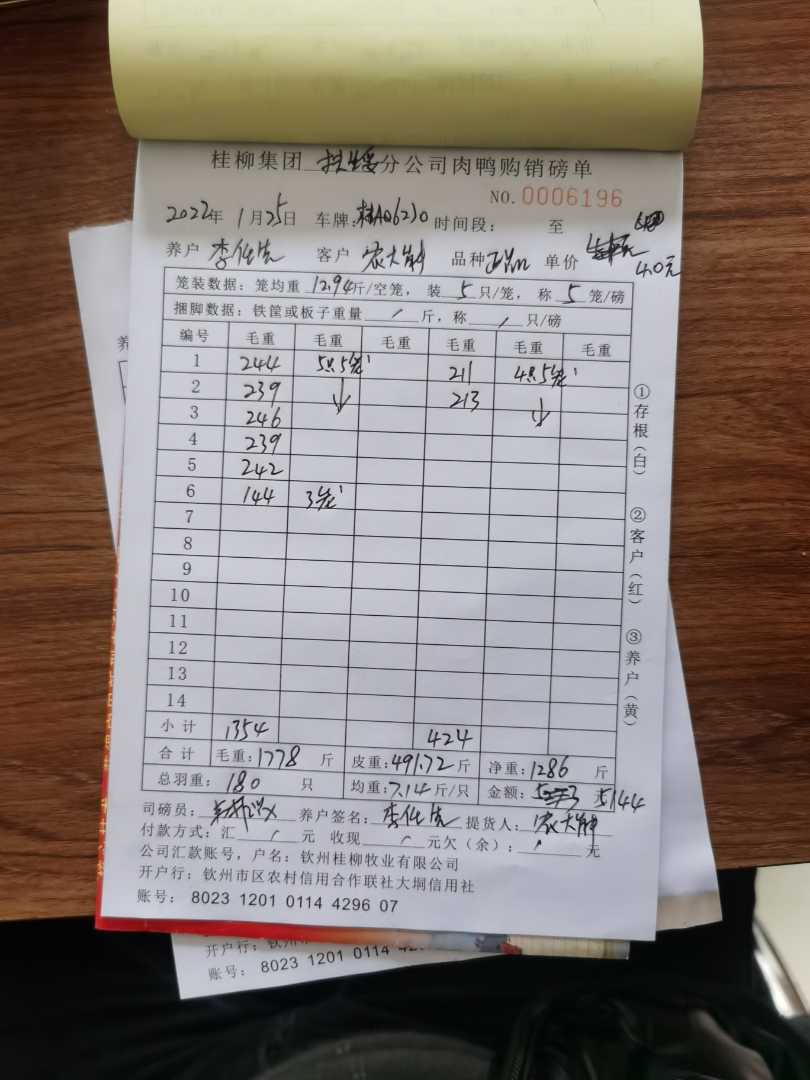 桂柳集团 扶绥 分公司肉鸭购销磅单
NO. 0006196
2022年 1月25日 车牌: 桂A06230 时间段: 至
养户 李仕先 客户 农大 品种 单价 4.0元
笼装数据: 笼均重 12.94 斤/空笼, 装 5 只/笼, 称 5 笼/磅
捆脚数据: 铁筐或板子重量 / 斤, 称 / 只/磅
编号 毛重 毛重 毛重 毛重 毛重 毛重
1 244 5只5笼 211 4只5笼
2 239 ↓ 213 ↓
3 246
4 239
5 242
6 144 3笼
7
8
9
10
11
12
13
14
小计 1354 424
合计 毛重: 1778 斤 皮重: 491.72 斤 净重: 1286 斤
总羽重: 180 只 均重: 7.14 斤/只 金额: 5144
司磅员: 养户签名: 李仕先 提货人: 农大
付款方式: 汇 / 元 收现 / 元欠(余): / 元
公司汇款账号, 户名: 钦州桂柳牧业有限公司
开户行: 钦州市区农村信用合作联社大垌信用社
账号: 8023 1201 0114 4296 07
①存根(白) ②客户(红) ③养户(黄)
养
开户行: 钦州
账号: 8023 1201 0114 42